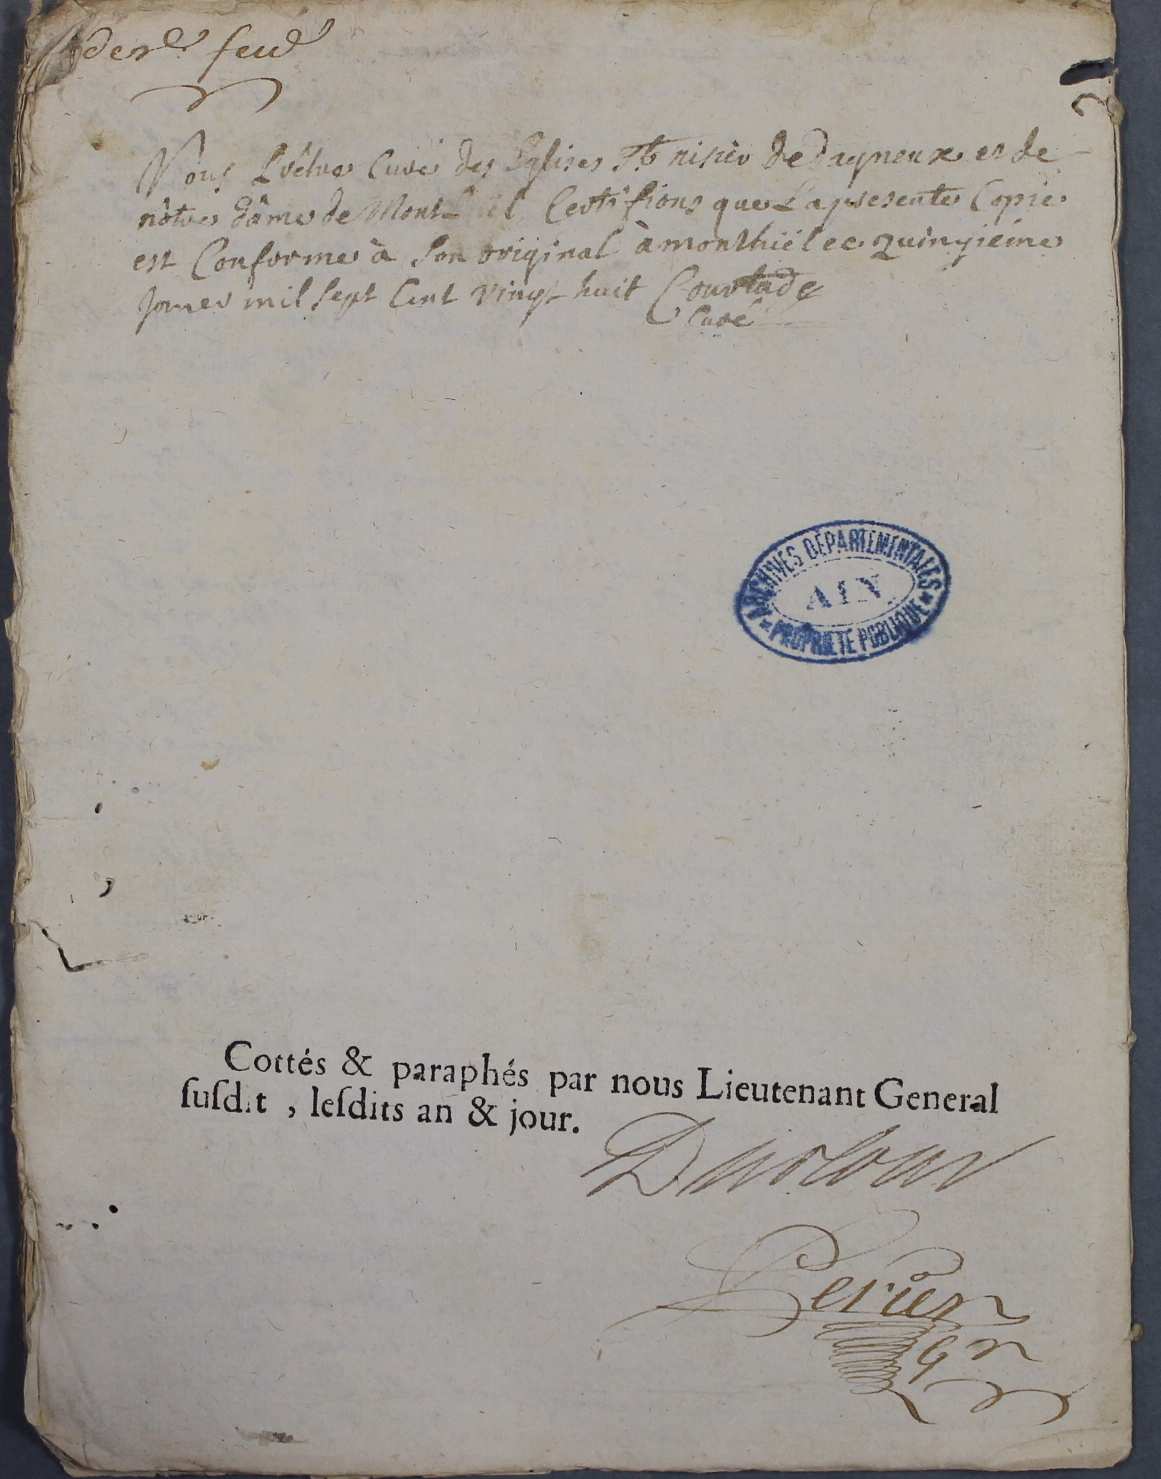 der.e feu.
Nous Prêtre Curé des Eglises St nisier de Dagneux et de
nôtre dâme de Montluel Certifions que la presente Copie
est Conforme à Son original à monthüel ce quinzieme
Janvier mil Sept Cent vingt huit Courtade
Curé
ARCHIVES DÉPARTEMENTALES
AIN
PROPRIÉTÉ PUBLIQUE
Cottés & paraphés par nous Lieutenant General
ſuſdit , leſdits an & jour.
Perier
Gr